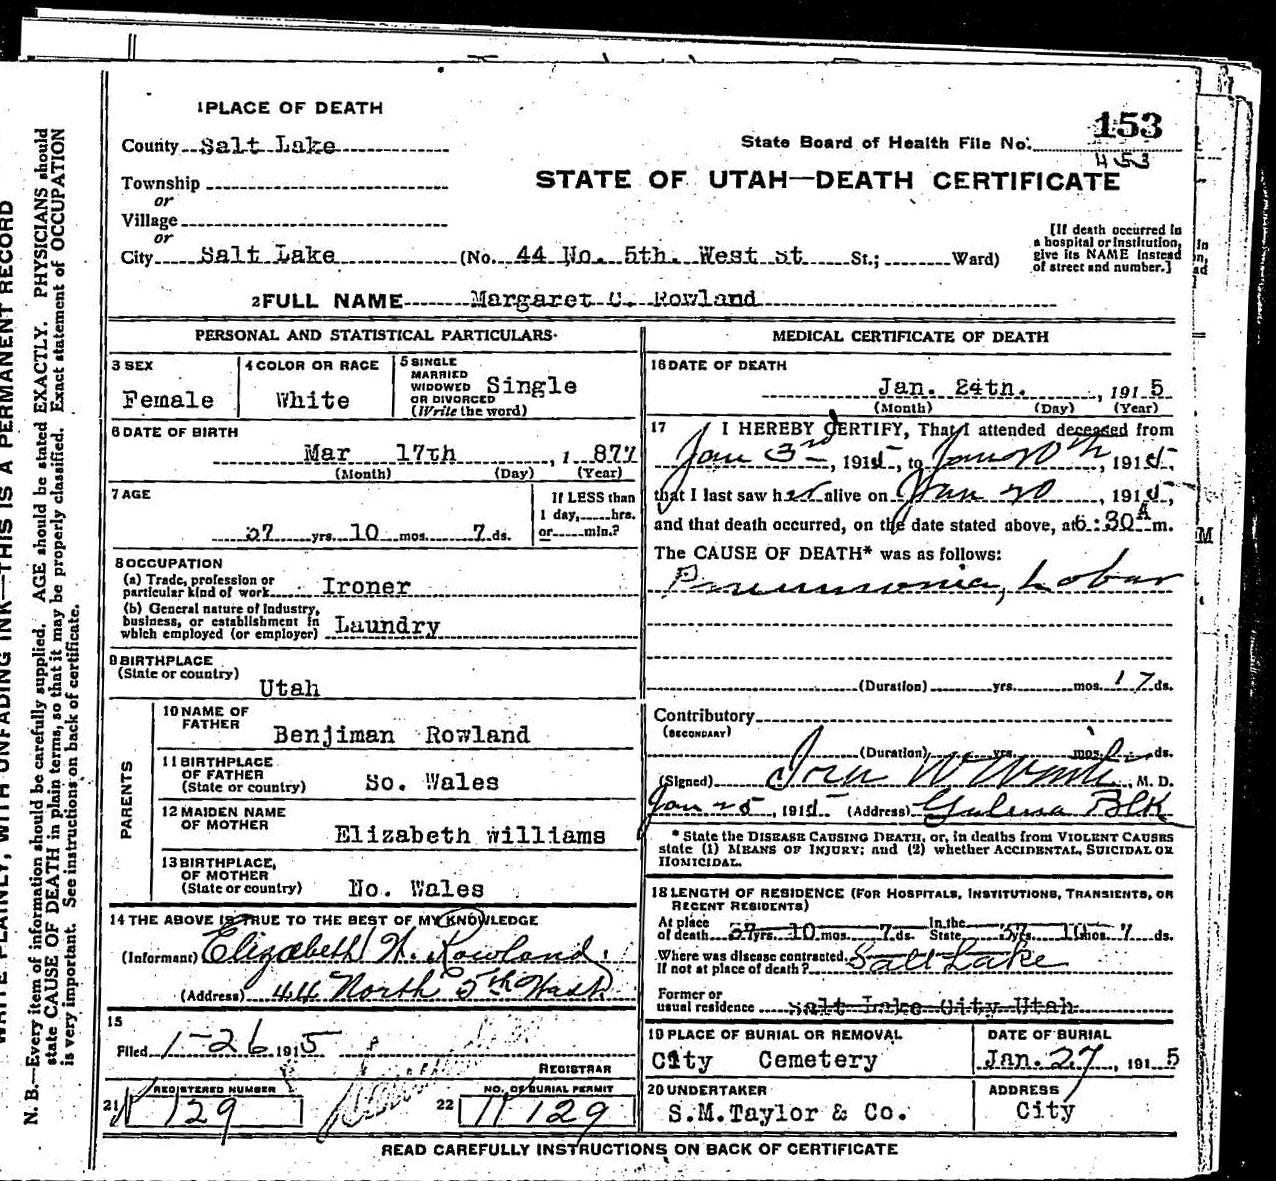 1 PLACE OF DEATH
County Salt Lake
State Board of Health File No. 153
453
Township
or
Village
or
STATE OF UTAH—DEATH CERTIFICATE
City Salt Lake (No. 44 No. 5th. West St St.; Ward)
[If death occurred in a hospital or institution, give its NAME instead of street and number.]
2 FULL NAME Margaret C. Rowland
PERSONAL AND STATISTICAL PARTICULARS
3 SEX
Female
4 COLOR OR RACE
White
5 SINGLE
MARRIED
WIDOWED
OR DIVORCED
(Write the word)
Single
6 DATE OF BIRTH
Mar 17th, 1 877
(Month) (Day) (Year)
7 AGE
37 yrs. 10 mos. 7 ds.
If LESS than
1 day, hrs.
or min.?
8 OCCUPATION
(a) Trade, profession or
particular kind of work Ironer
(b) General nature of industry,
business, or establishment in
which employed (or employer) Laundry
9 BIRTHPLACE
(State or country)
Utah
PARENTS
10 NAME OF
FATHER
Benjiman Rowland
11 BIRTHPLACE
OF FATHER
(State or country) So. Wales
12 MAIDEN NAME
OF MOTHER
Elizabeth Williams
13 BIRTHPLACE,
OF MOTHER
(State or country) No. Wales
14 THE ABOVE IS TRUE TO THE BEST OF MY KNOWLEDGE
(Informant) Elizabeth W. Rowland
(Address) 44 North 5th West
15
Filed 1-26 1915
REGISTRAR
REGISTERED NUMBER
21 129
NO. OF BURIAL PERMIT
22 129
MEDICAL CERTIFICATE OF DEATH
16 DATE OF DEATH
Jan. 24th. , 191 5
(Month) (Day) (Year)
17 I HEREBY CERTIFY, That I attended deceased from
Jan 3rd, 1915, to Jan 20th, 1915,
that I last saw her alive on Jan 20, 1915,
and that death occurred, on the date stated above, at 6:30 A m.
The CAUSE OF DEATH* was as follows:
Pneumonia, Lobar
(Duration) yrs. mos. 17 ds.
Contributory
(SECONDARY)
(Duration) yrs. mos. ds.
(Signed) M. D.
Jan 25, 1915 (Address) Galena Blk
* State the DISEASE CAUSING DEATH, or, in deaths from VIOLENT CAUSES
state (1) MEANS OF INJURY; and (2) whether ACCIDENTAL, SUICIDAL OR
HOMICIDAL.
18 LENGTH OF RESIDENCE (FOR HOSPITALS, INSTITUTIONS, TRANSIENTS, OR
RECENT RESIDENTS)
At place
of death 37 yrs. 10 mos. 7 ds.
In the
State 37 yrs. 10 mos. 7 ds.
Where was disease contracted,
If not at place of death? Salt Lake
Former or
usual residence Salt Lake City Utah
19 PLACE OF BURIAL OR REMOVAL
City Cemetery
DATE OF BURIAL
Jan. 27, 191 5
20 UNDERTAKER
S.M.Taylor & Co.
ADDRESS
City
READ CAREFULLY INSTRUCTIONS ON BACK OF CERTIFICATE
WRITE PLAINLY, WITH UNFADING INK—THIS IS A PERMANENT RECORD
N. B.—Every item of information should be carefully supplied. AGE should be stated EXACTLY. PHYSICIANS should
state CAUSE OF DEATH in plain terms, so that it may be properly classified. Exact statement of OCCUPATION
is very important. See instructions on back of certificate.